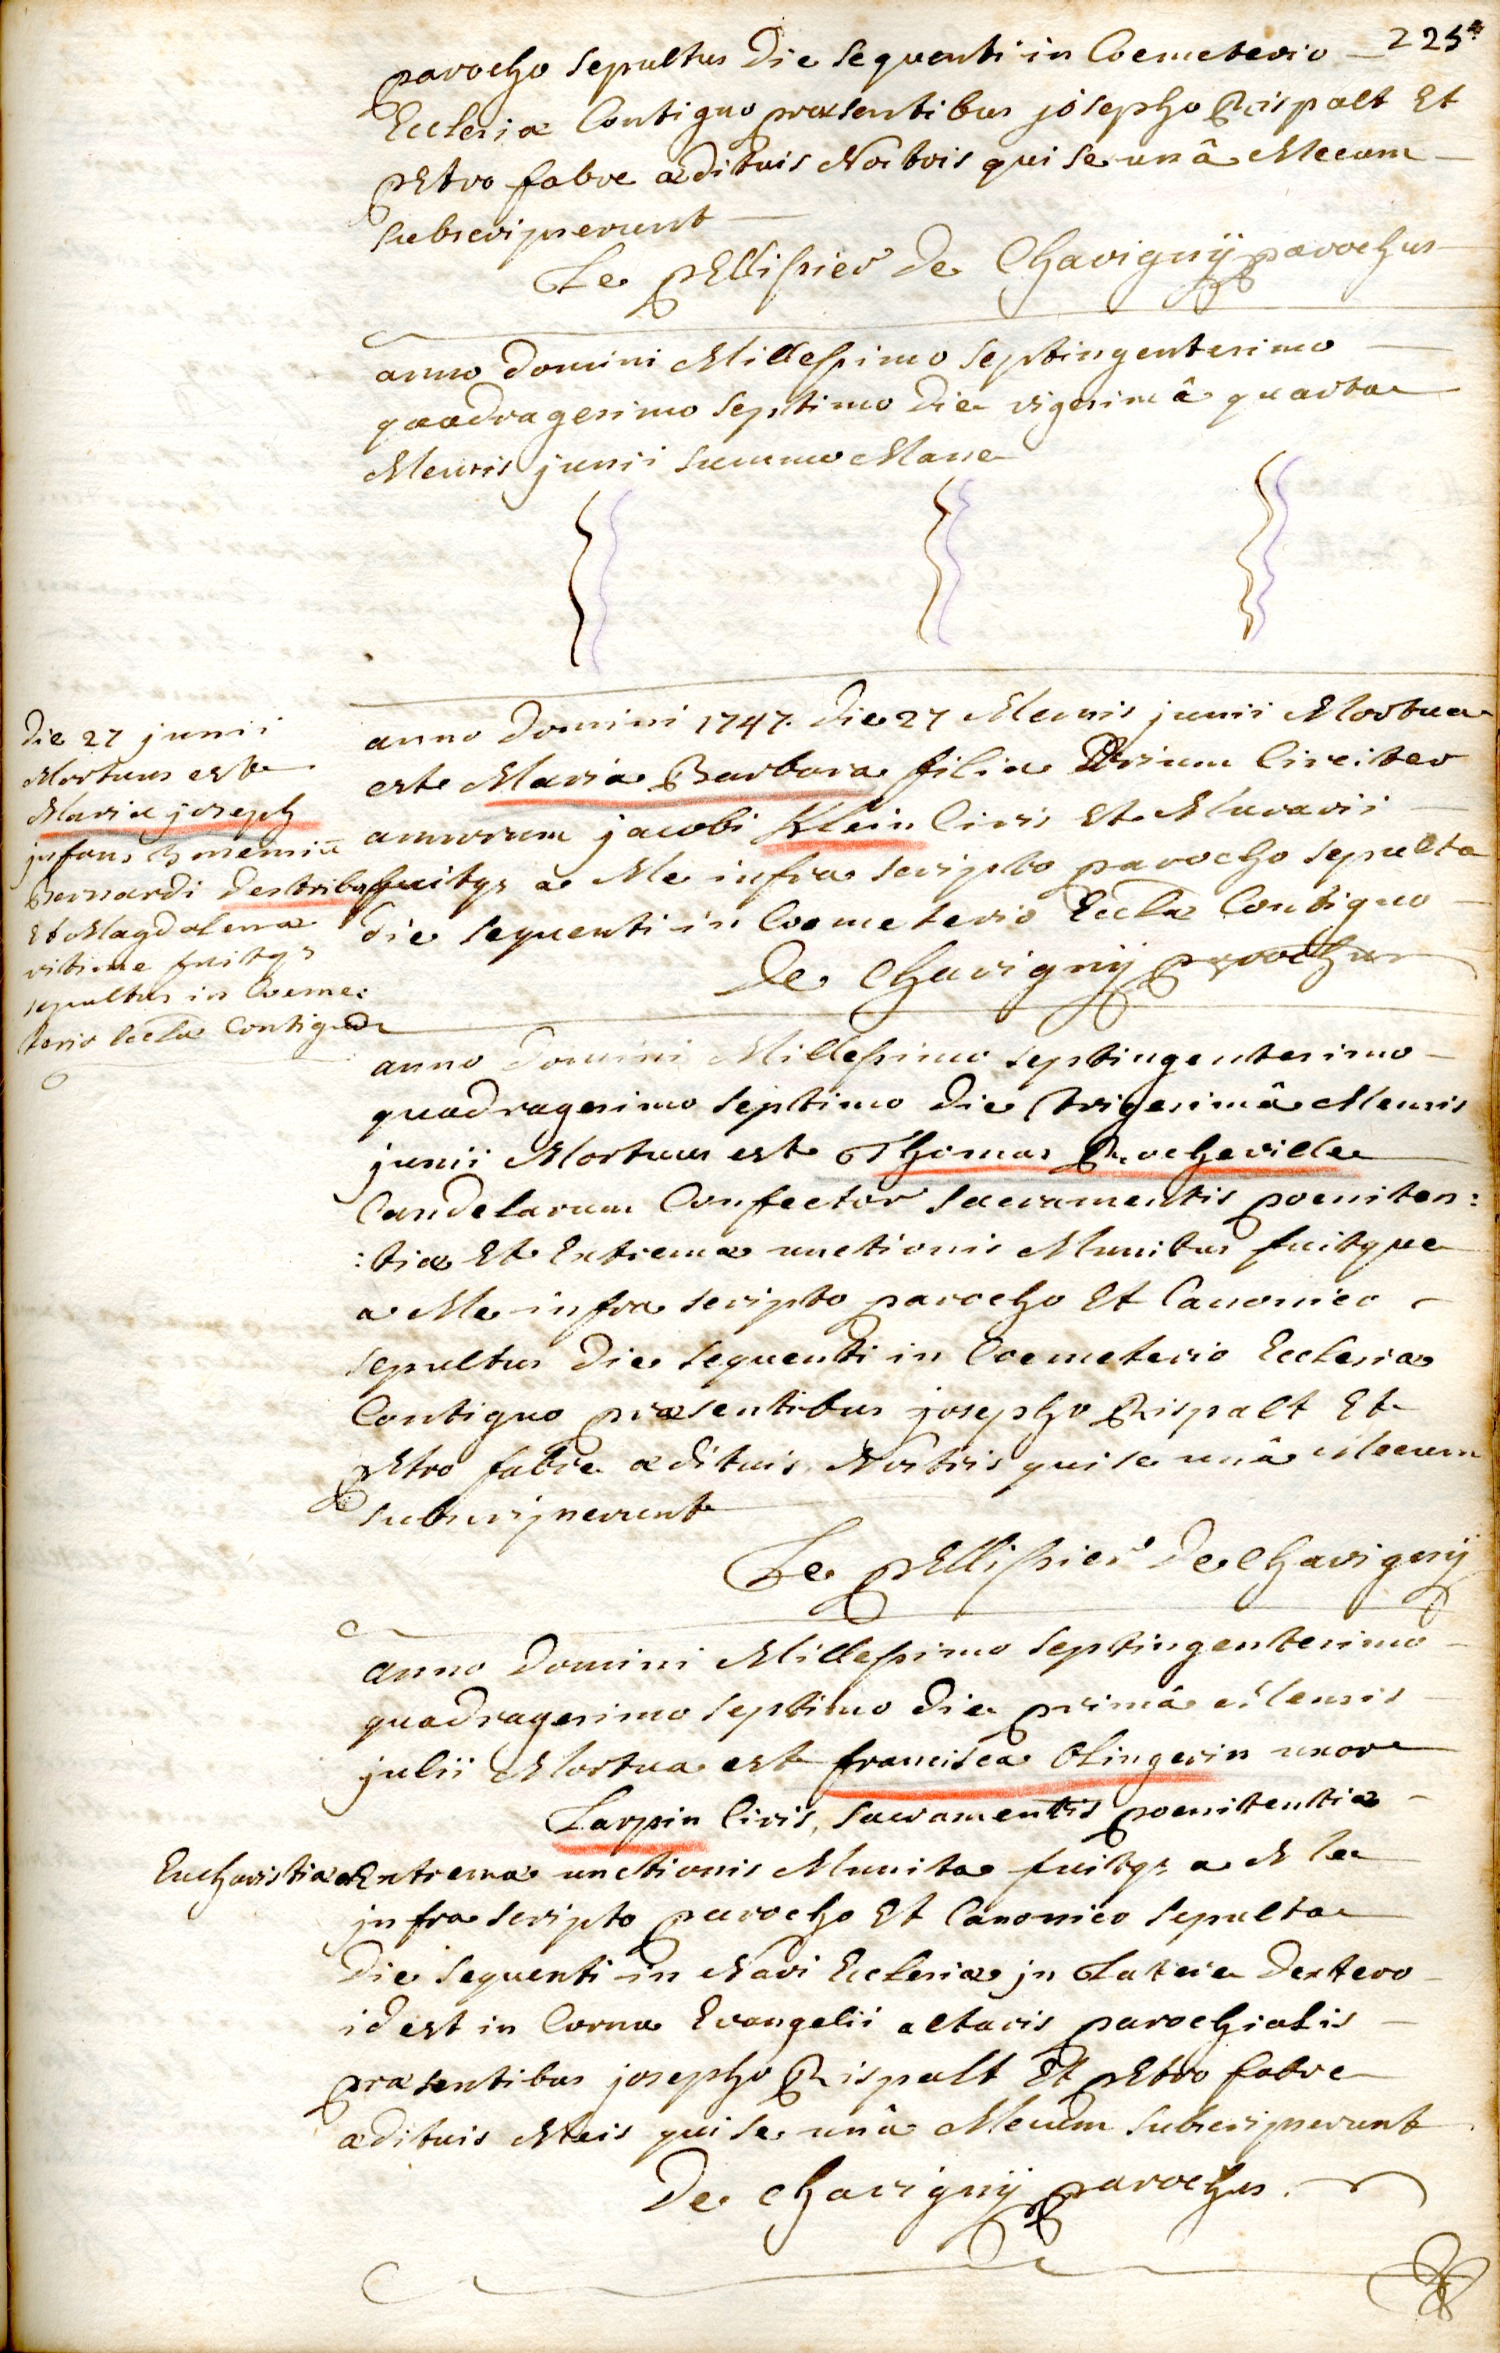 225
parocho sepultus die sequenti in Coemeterio
Ecclesiæ Contiguo præsentibus josepho Rispalt Et
petro fabre ædituis Nostris qui se unâ Mecum
subscripserunt
Le pellissier de Chavignÿ parochus
anno Domini Millessimo septingentesimo
quadragesimo septimo die vigesimâ quarta
Mensis junii summo Mane
anno Domini 1747. die 27 Mensis junii Mortua
est Maria Barbara filia trium Circiter
annorum jacobi Klein Civis Et Murarii
fuitqz a Me infra scripto parocho sepulta
die sequenti in Coemeterio Eccla Contiguo
de Chavignÿ parochus
die 27 junii
Mortuus est
Maria joseph
infans
Bernardi
Et Magdalena
fuitqz
sepultus in Coeme:
terio Eccla Contiguo
anno Domini Millessimo septingentesimo
quadragesimo septimo die trigesimâ Mensis
junii Mortuus est Thomas Rocheville
Candelarum Confector sacramentis poeniten:
:tiæ Et Extremæ unctionis Munitus fuitque
a Me infra scripto parocho Et Canonico
sepultus die sequenti in Coemeterio Ecclesiæ
Contiguo præsentibus josepho Rispalt Et
petro fabre ædituis Nostris qui se unâ Mecum
subscripserunt
Le pellissier de Chavignÿ
anno Domini Millessimo septingentesimo
quadragesimo septimo die primâ Mensis
julii Mortua est francisca Olingerin uxor
Larpin Civis, sacramentis poenitentiæ
Eucharistiæ et Extremæ unctionis Munita fuitqz a Me
infra scripto parocho Et Canonico sepulta
die sequenti in Navi Ecclesiæ in Latere dextero
id est in Cornu Evangelii altaris parochialis
præsentibus josepho Rispalt Et petro fabre
ædituis Meis qui se unâ Mecum subscripserunt
de Chavignÿ parochus.